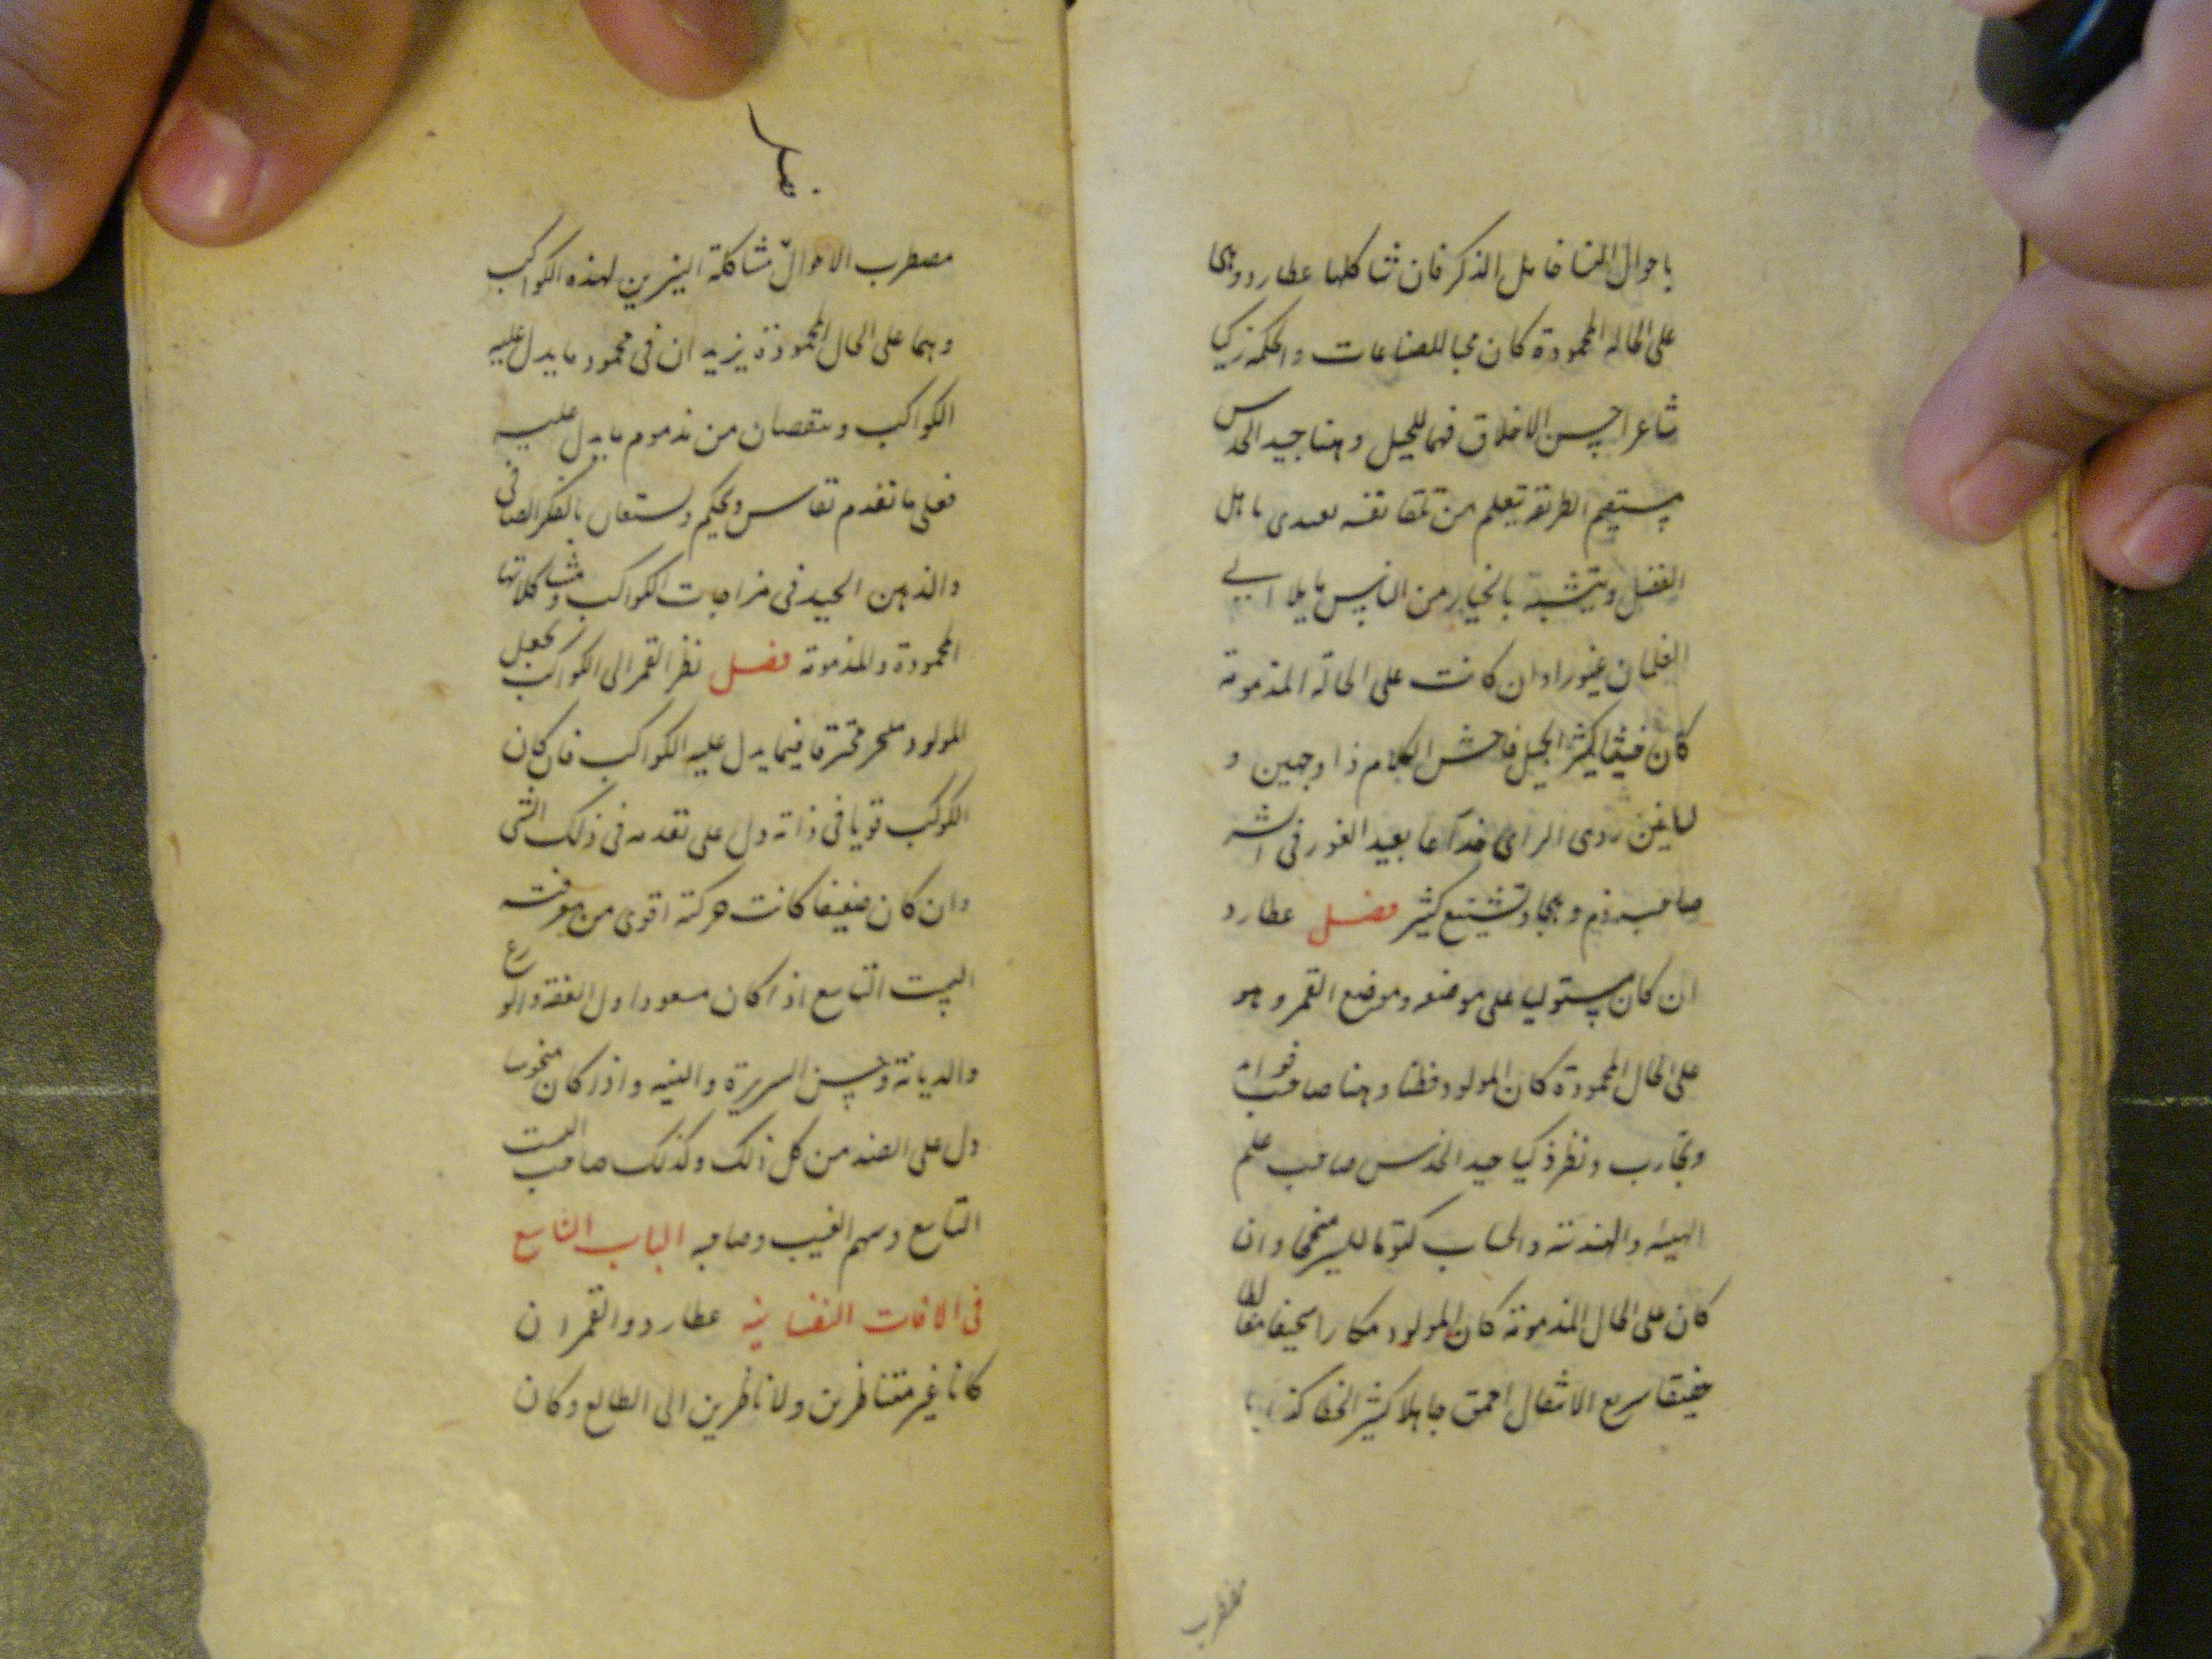 باحوال النسا خامل الذكر فان شاكلها عطارد وهما
على الحاله المحمودة كان محبا للصناعات والحكمه زكيا
شاعرا حسن الاخلاق فهما للحيل وهنا جيد الحدس
مستقيم الطريقة يتعلم من تلقا نفسه يهتدى باهل
الفضل ويتشبه بالخيار من الناس مايلا الى
الغلمان غيورا وان كانت على الحالة المذمومة
كان خبيثا كثير الحيل فاحش الكلام ذا وجهين و
لسانين ردى الراى خداعا بعيد الغور فى الشر
صاحب ذم وهجا وتشنيع كثير فصل عطارد
ان كان مستوليا على موضعه وموضع القمر وهو
على الحال المحمودة كان المولود فطنا وهنا صاحب
وتجارب ونظر ذكيا جيد الحدس صاحب علم
الهيئه والهندسة والحساب كتوما للسر منجما وان
كان على الحال المذمومة كان المولود مكارا سخيفا
خفيفا سريع الانتقال احمق جاهلا كثير الخطا كذابا
مضطرب
مضطرب الاحوال مشاكلة النيرين لهذه الكواكب
وهما على الحال المحمودة يزيدان فى محمود ما يدل عليه
الكواكب وينقصان من مذموم ما يدل عليه
فعلى ما تقدم تقاس وتحكم وتستعان بالفكر الصافى
والذهن الجيد فى مزاجات الكواكب ومشاكلاتها
المحمودة والمذمومة فصل نظر القمر الى الكواكب يجعل
المولود متحرفا فيما يدل عليه الكواكب فان كان
الكوكب قويا فى ذاته دل على تقدمه فى ذلك الشى
وان كان ضعيفا كانت حركته اقوى من معرفته
البيت التاسع اذا كان مسعودا دل الفقه والورع
والديانة وحسن السريرة والنيه واذا كان منحوسا
دل على الضد من كل ذلك وكذلك صاحب البيت
التاسع وسهم الغيب وصاحبه الباب التاسع
فى الافات النفسانية عطارد والقمر ان
كانا غير متناظرين ولا ناظرين الى الطالع وكان